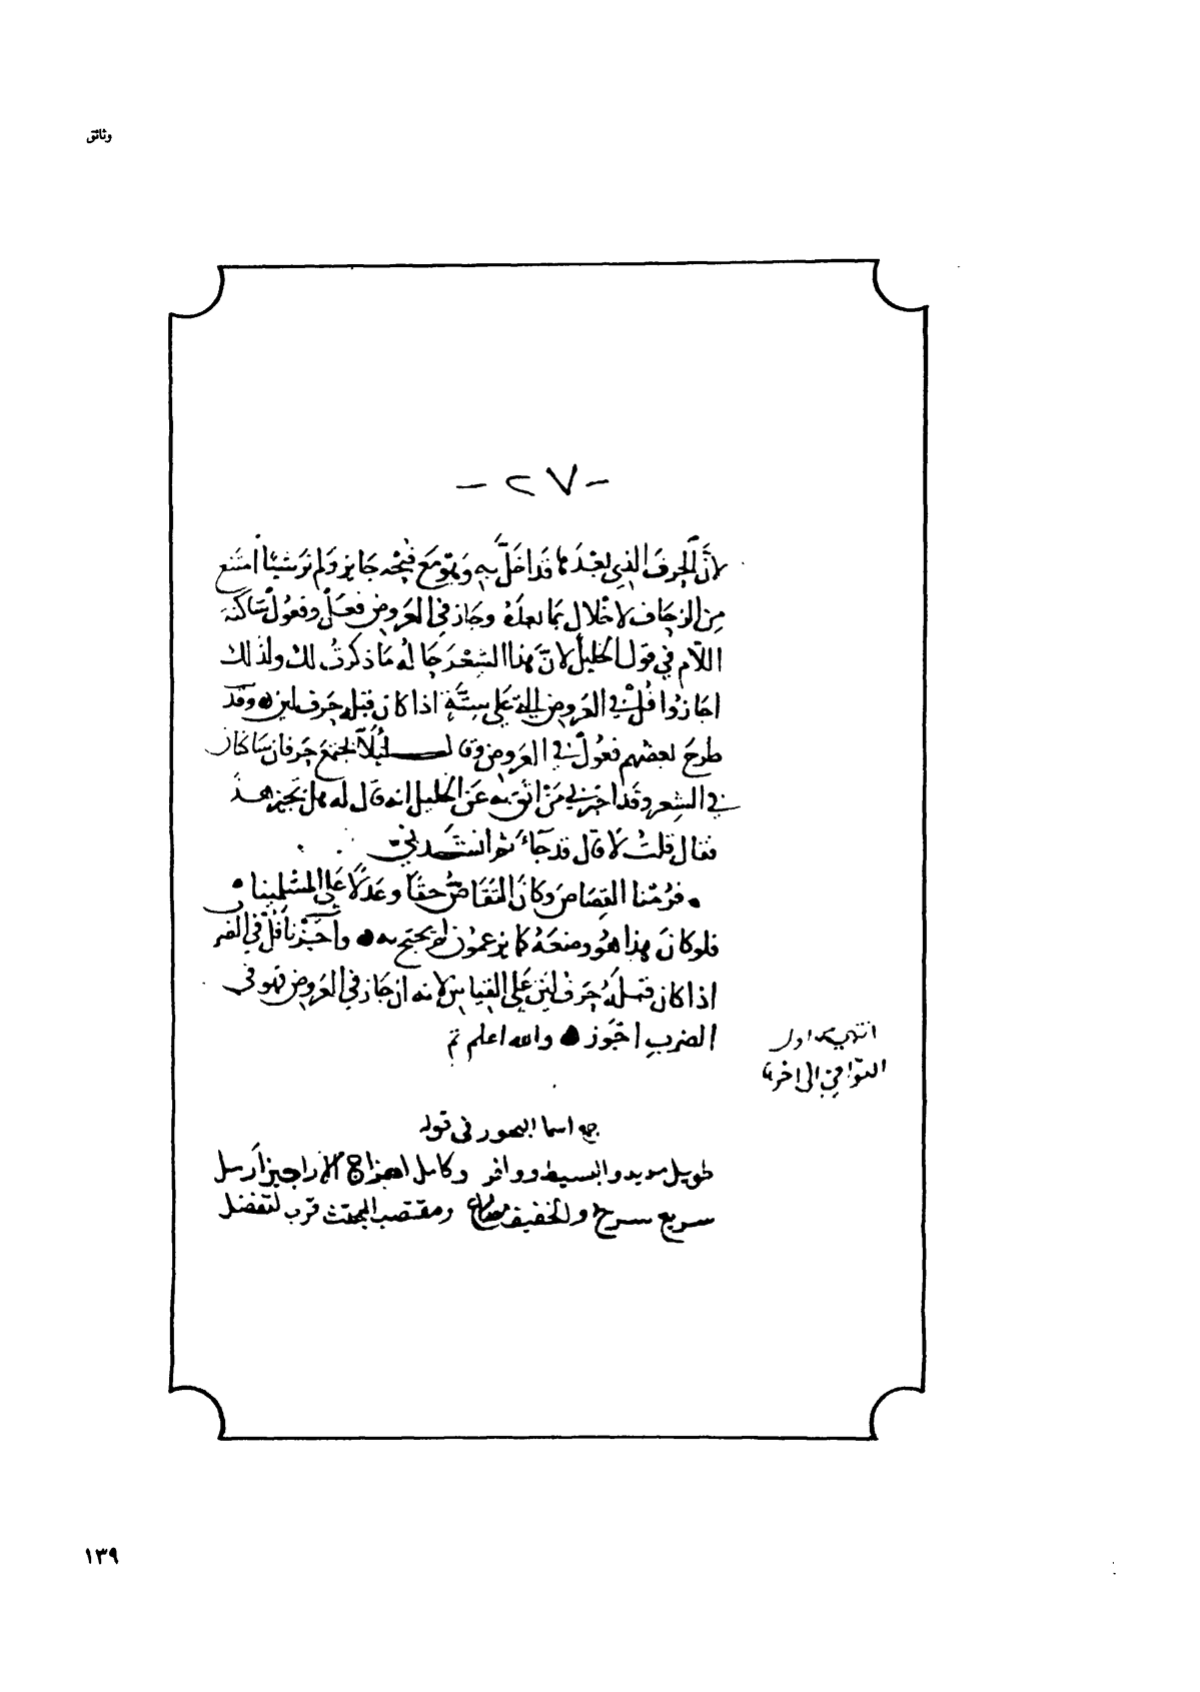 وثائق
- ٢٧ -
لأنَّ الحرفَ الذي بعْدَها قد أخلَّ به وَهو مَعَ قبْحه جَايز وَلم نرَ شيئًا امتنع
مِن الزحَاف لاخْلالٍ بما بعدَهُ وجَاز في العَروض فعَلْ وفعُولْ سَاكنة
اللام في قول الخليل لانّ هذا الشعْر جَا له مَا ذكرتُ لك ولذلك
اجازوا فُلْ في العَروض على ستّة اذا كان قبله حَرف لين وقد
طرحَ بعضهم فعُولْ في العَروض وقال لئلّا يجتمعَ حَرفان سَاكنان
في الشعر وقد اخبرني مَنْ اثق به عَن الخليل انه قَال له هل تجيز هذا
فقال قلتُ لا قال قد جَآءَ ثم انشدني
فرُمْنا القصَاصَ وكانَ التقَاصُّ حقًّا وعَدْلًا عَلى المسْلمينا
فلو كانَ هذا هُو وضعَهُ كما يزعمُون لم يحتج به وأجَزْنا فُلْ في الضر
اذا كان قبلهُ حَرفُ لين عَلى القياس لانه ان جَاز في العَروض فهو في
الضربِ اجوَز والله اعلم تم
انتهى اول
القوافي الى اخرها
اسما البحور في قوله
طويل مديد والبسيط ووافر وكامل اهزاج الاراجيز أرسل
سريع سرح والخفيف مضارع ومقتضب المجتث قرب لتفضل
١٣٩